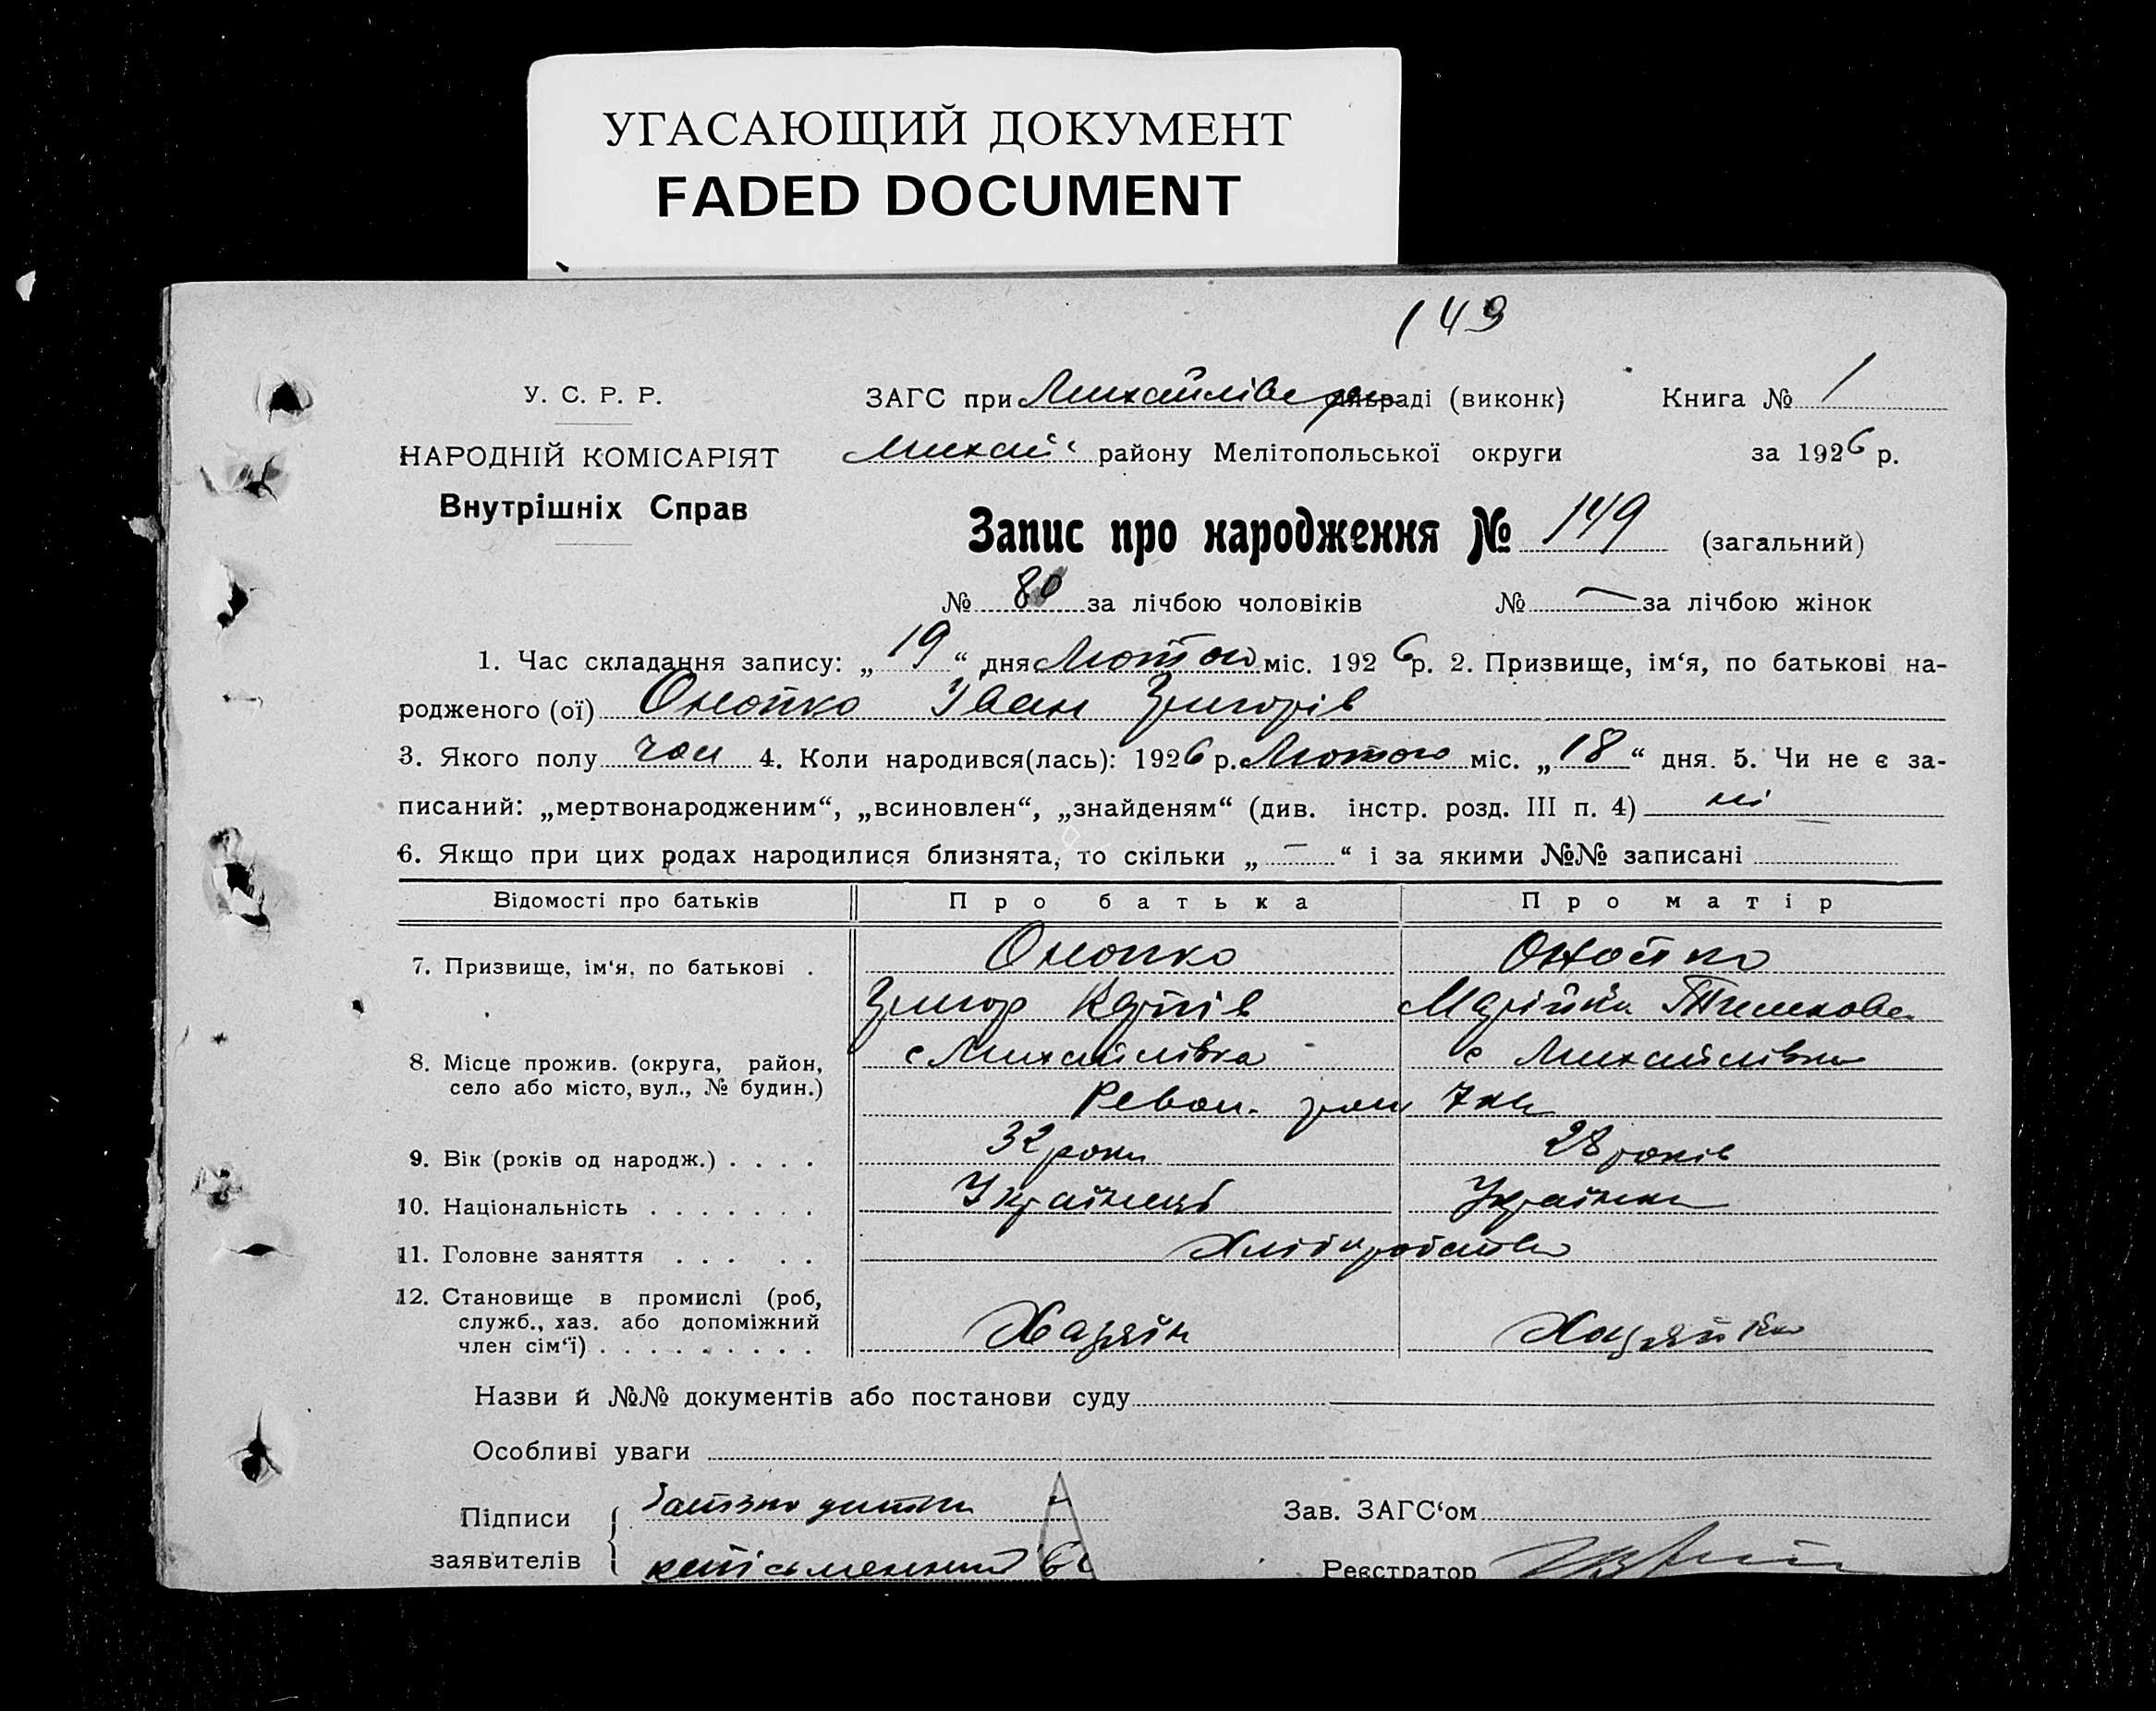 УГАСАЮЩИЙ ДОКУМЕНТ
FADED DOCUMENT
149
У. С. Р. Р.
НАРОДНІЙ КОМІСАРІЯТ
Внутрішніх Справ
ЗАГС при Михайлівс раді (виконк) Книга № 1
Михай району Мелітопольської округи за 1926 р.
Запис про народження № 149 (загальний)
№ 80 за лічбою чоловіків № — за лічбою жінок
1. Час складання запису: „19“ дня Лютого міс. 1926 р. 2. Призвище, ім‘я, по батькові на-
родженого (ої) Онопко Іван Григорів
3. Якого полу чол 4. Коли народився(лась): 1926 р. Лютого міс. „18“ дня. 5. Чи не є за-
писаний: „мертвонародженим“, „всиновлен“, „знайденям“ (див. інстр. розд. III п. 4) ні
6. Якщо при цих родах народилися близнята, то скільки „—“ і за якими №№ записані
Відомості про батьків Про батька Про матір
7. Призвище, ім‘я, по батькові . Онопко Онопко
Григор Карпів Марійка
8. Місце прожив. (округа, район, с Михайлівка с Михайлівка
село або місто, вул., № будин.) Револ. 7
9. Вік (років од народж.) . . . . 32 роки 28 років
10. Національність . . . . . . . Українець Українка
11. Головне заняття . . . . . Хліборобство
12. Становище в промислі (роб,
служб., хаз. або допоміжний
член сім‘ї) . . . . . . . . . Хазяїн Хазяйка
Назви й №№ документів або постанови суду
Особливі уваги
Підписи Зав. ЗАГС‘ом
заявителів Реєстратор